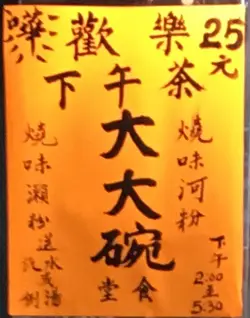 嘩歡樂25元
下午茶
大大碗
堂食
燒味河粉
下午
2:00
至
5:30
燒味瀨粉送水
湯
例